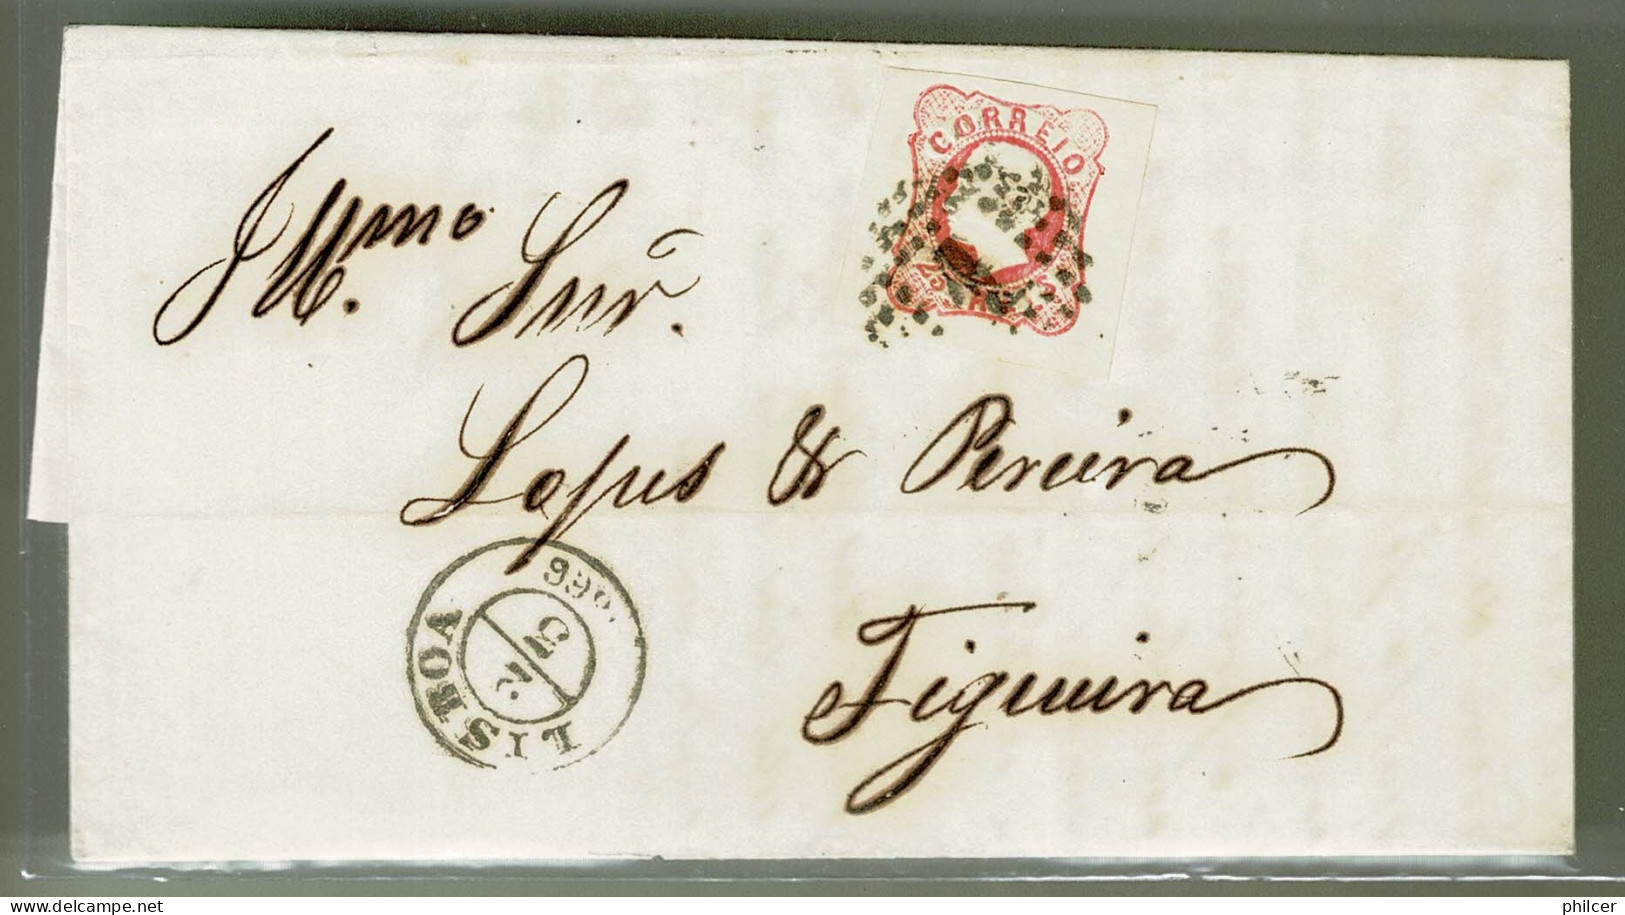 CORREIO
25 REIS
Illmo. Snr.
Lopes & Pereira
Figueira
LISBOA
5
www.delcampe.net
philcer